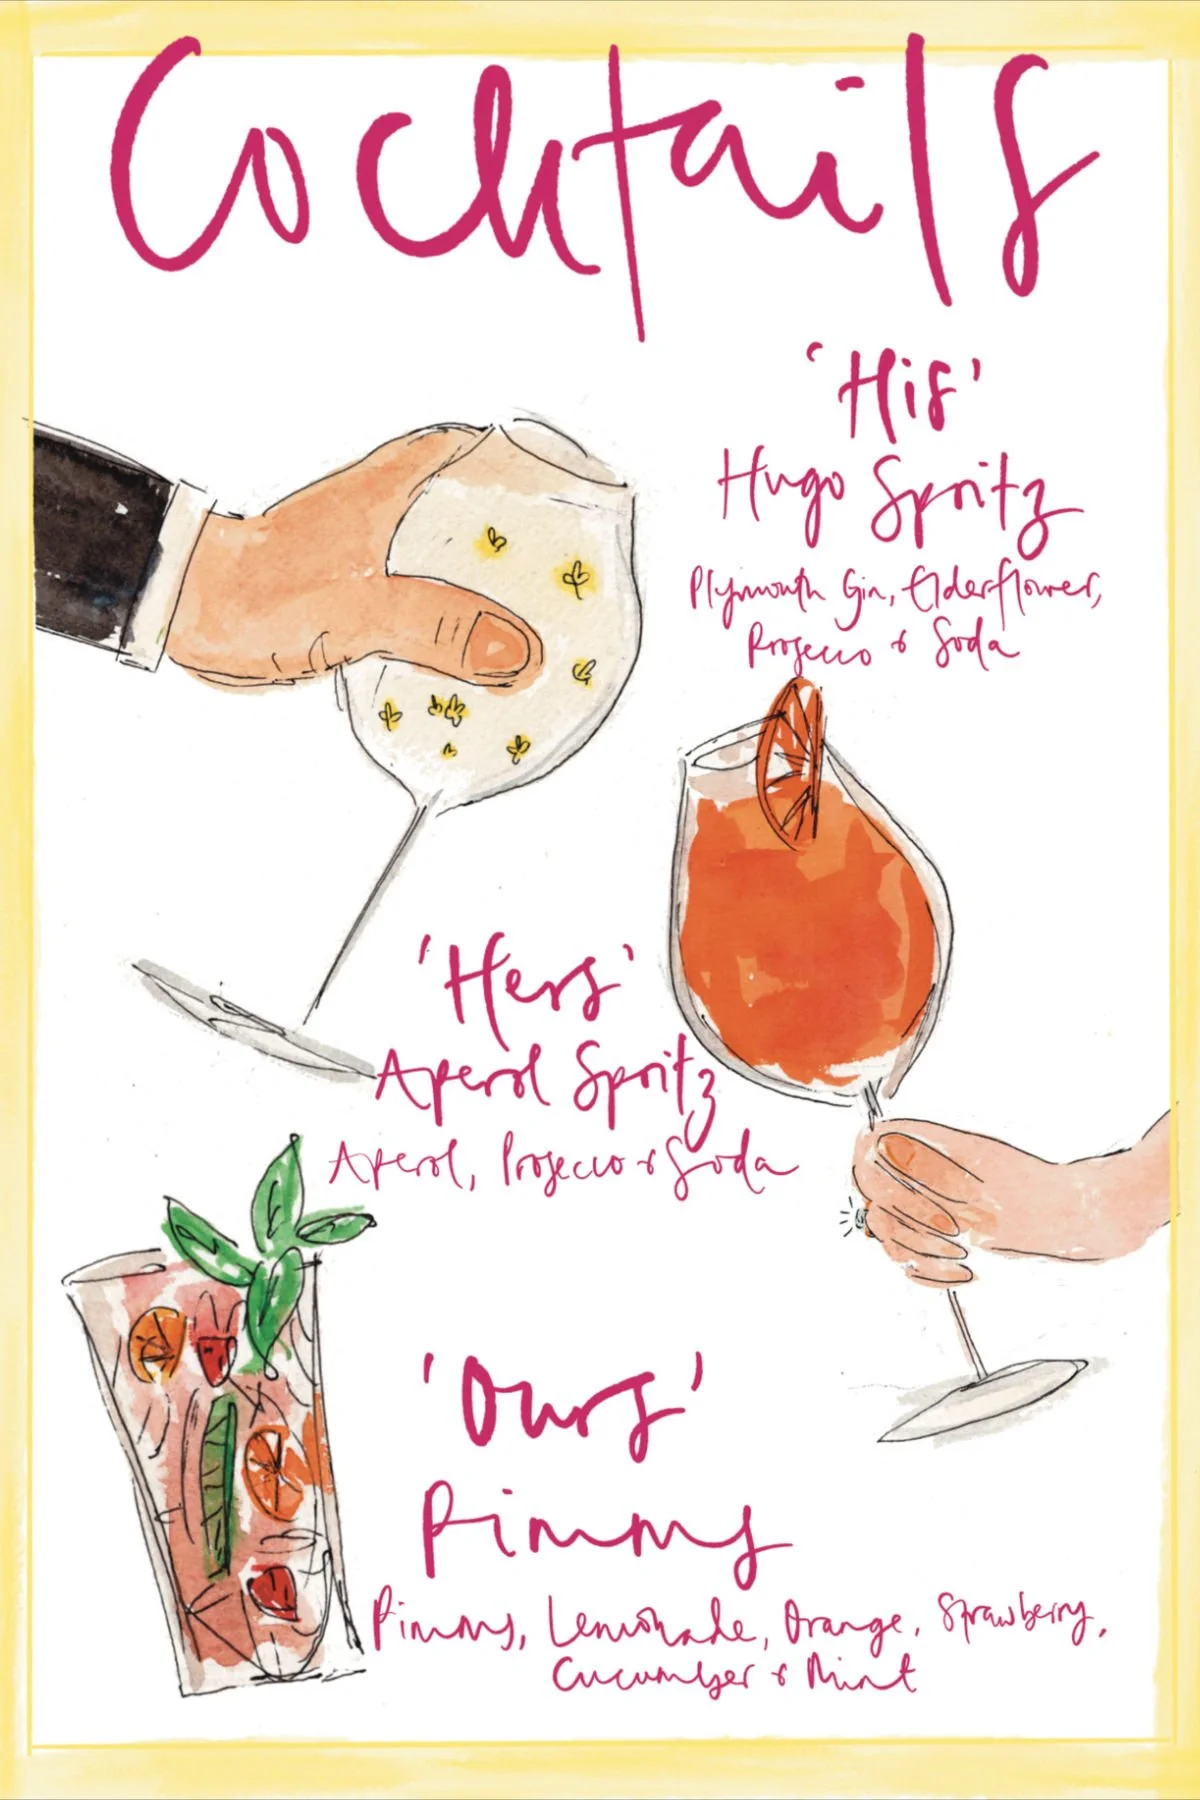 Cocktails
'His'
Hugo Spritz
Plymouth Gin, Elderflower,
Prosecco & Soda
'Hers'
Aperol Spritz
Aperol, Prosecco & Soda
'Ours'
Pimms
Pimms, Lemonade, Orange, Strawberry,
Cucumber & Mint